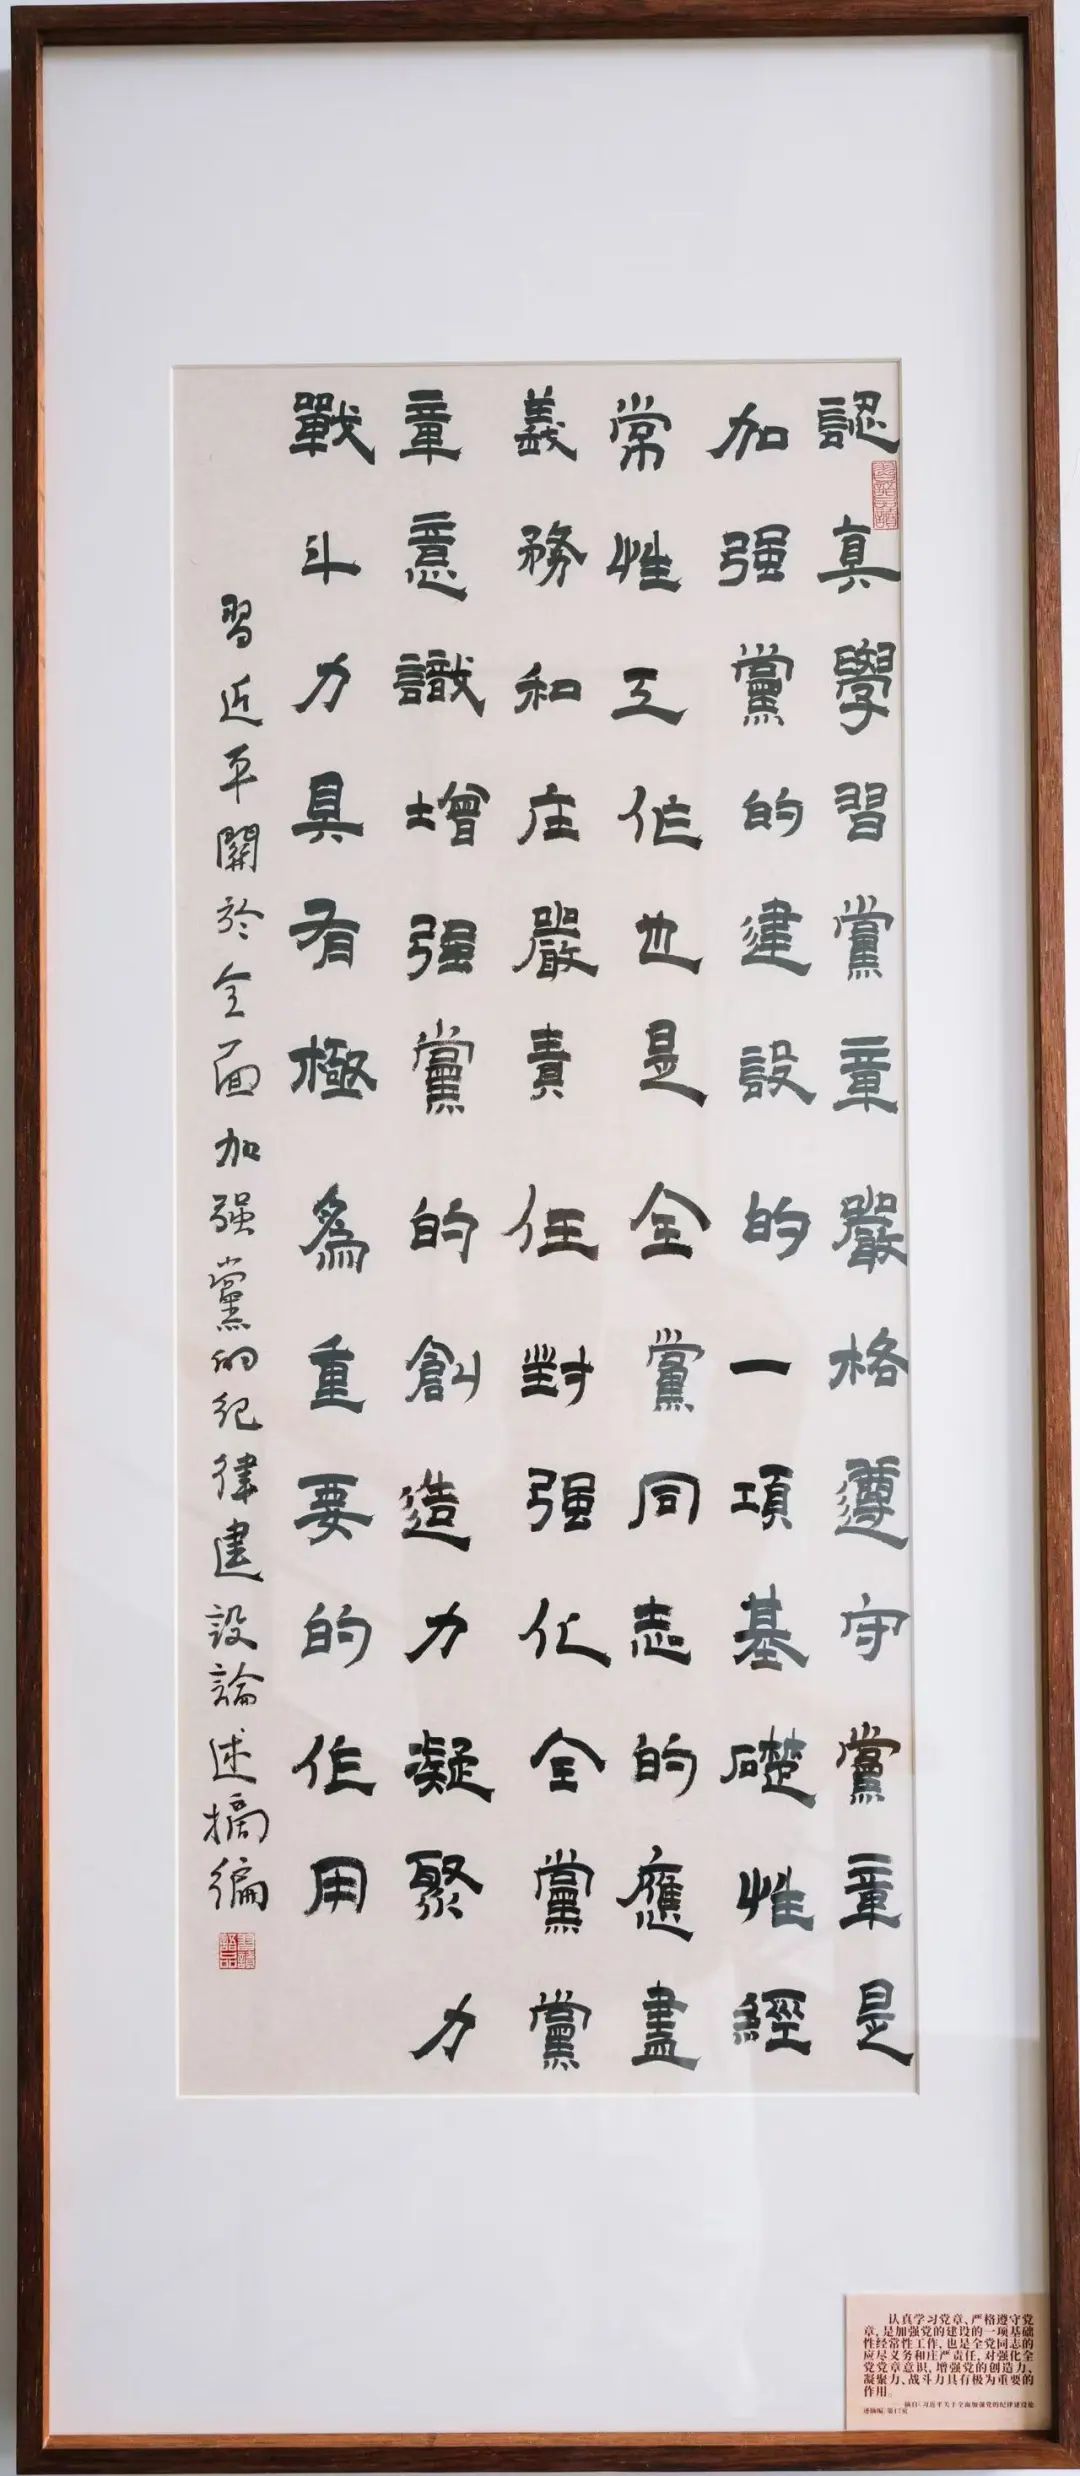 認真學習黨章嚴格遵守黨章是
加强黨的建設的一項基礎性經
常性工作也是全黨同志的應盡
義務和庄嚴責任對强化全黨黨
章意識增强黨的創造力凝聚力
戰斗力具有極為重要的作用
習近平關於全面加强黨的紀律建設論述摘编
认真学习党章、严格遵守党
章，是加强党的建设的一项基础
性经常性工作，也是全党同志的
应尽义务和庄严责任，对强化全
党党章意识，增强党的创造力、
凝聚力、战斗力具有极为重要的
作用。
摘自：习近平关于全面加强党的纪律建设论
述摘编，第17页